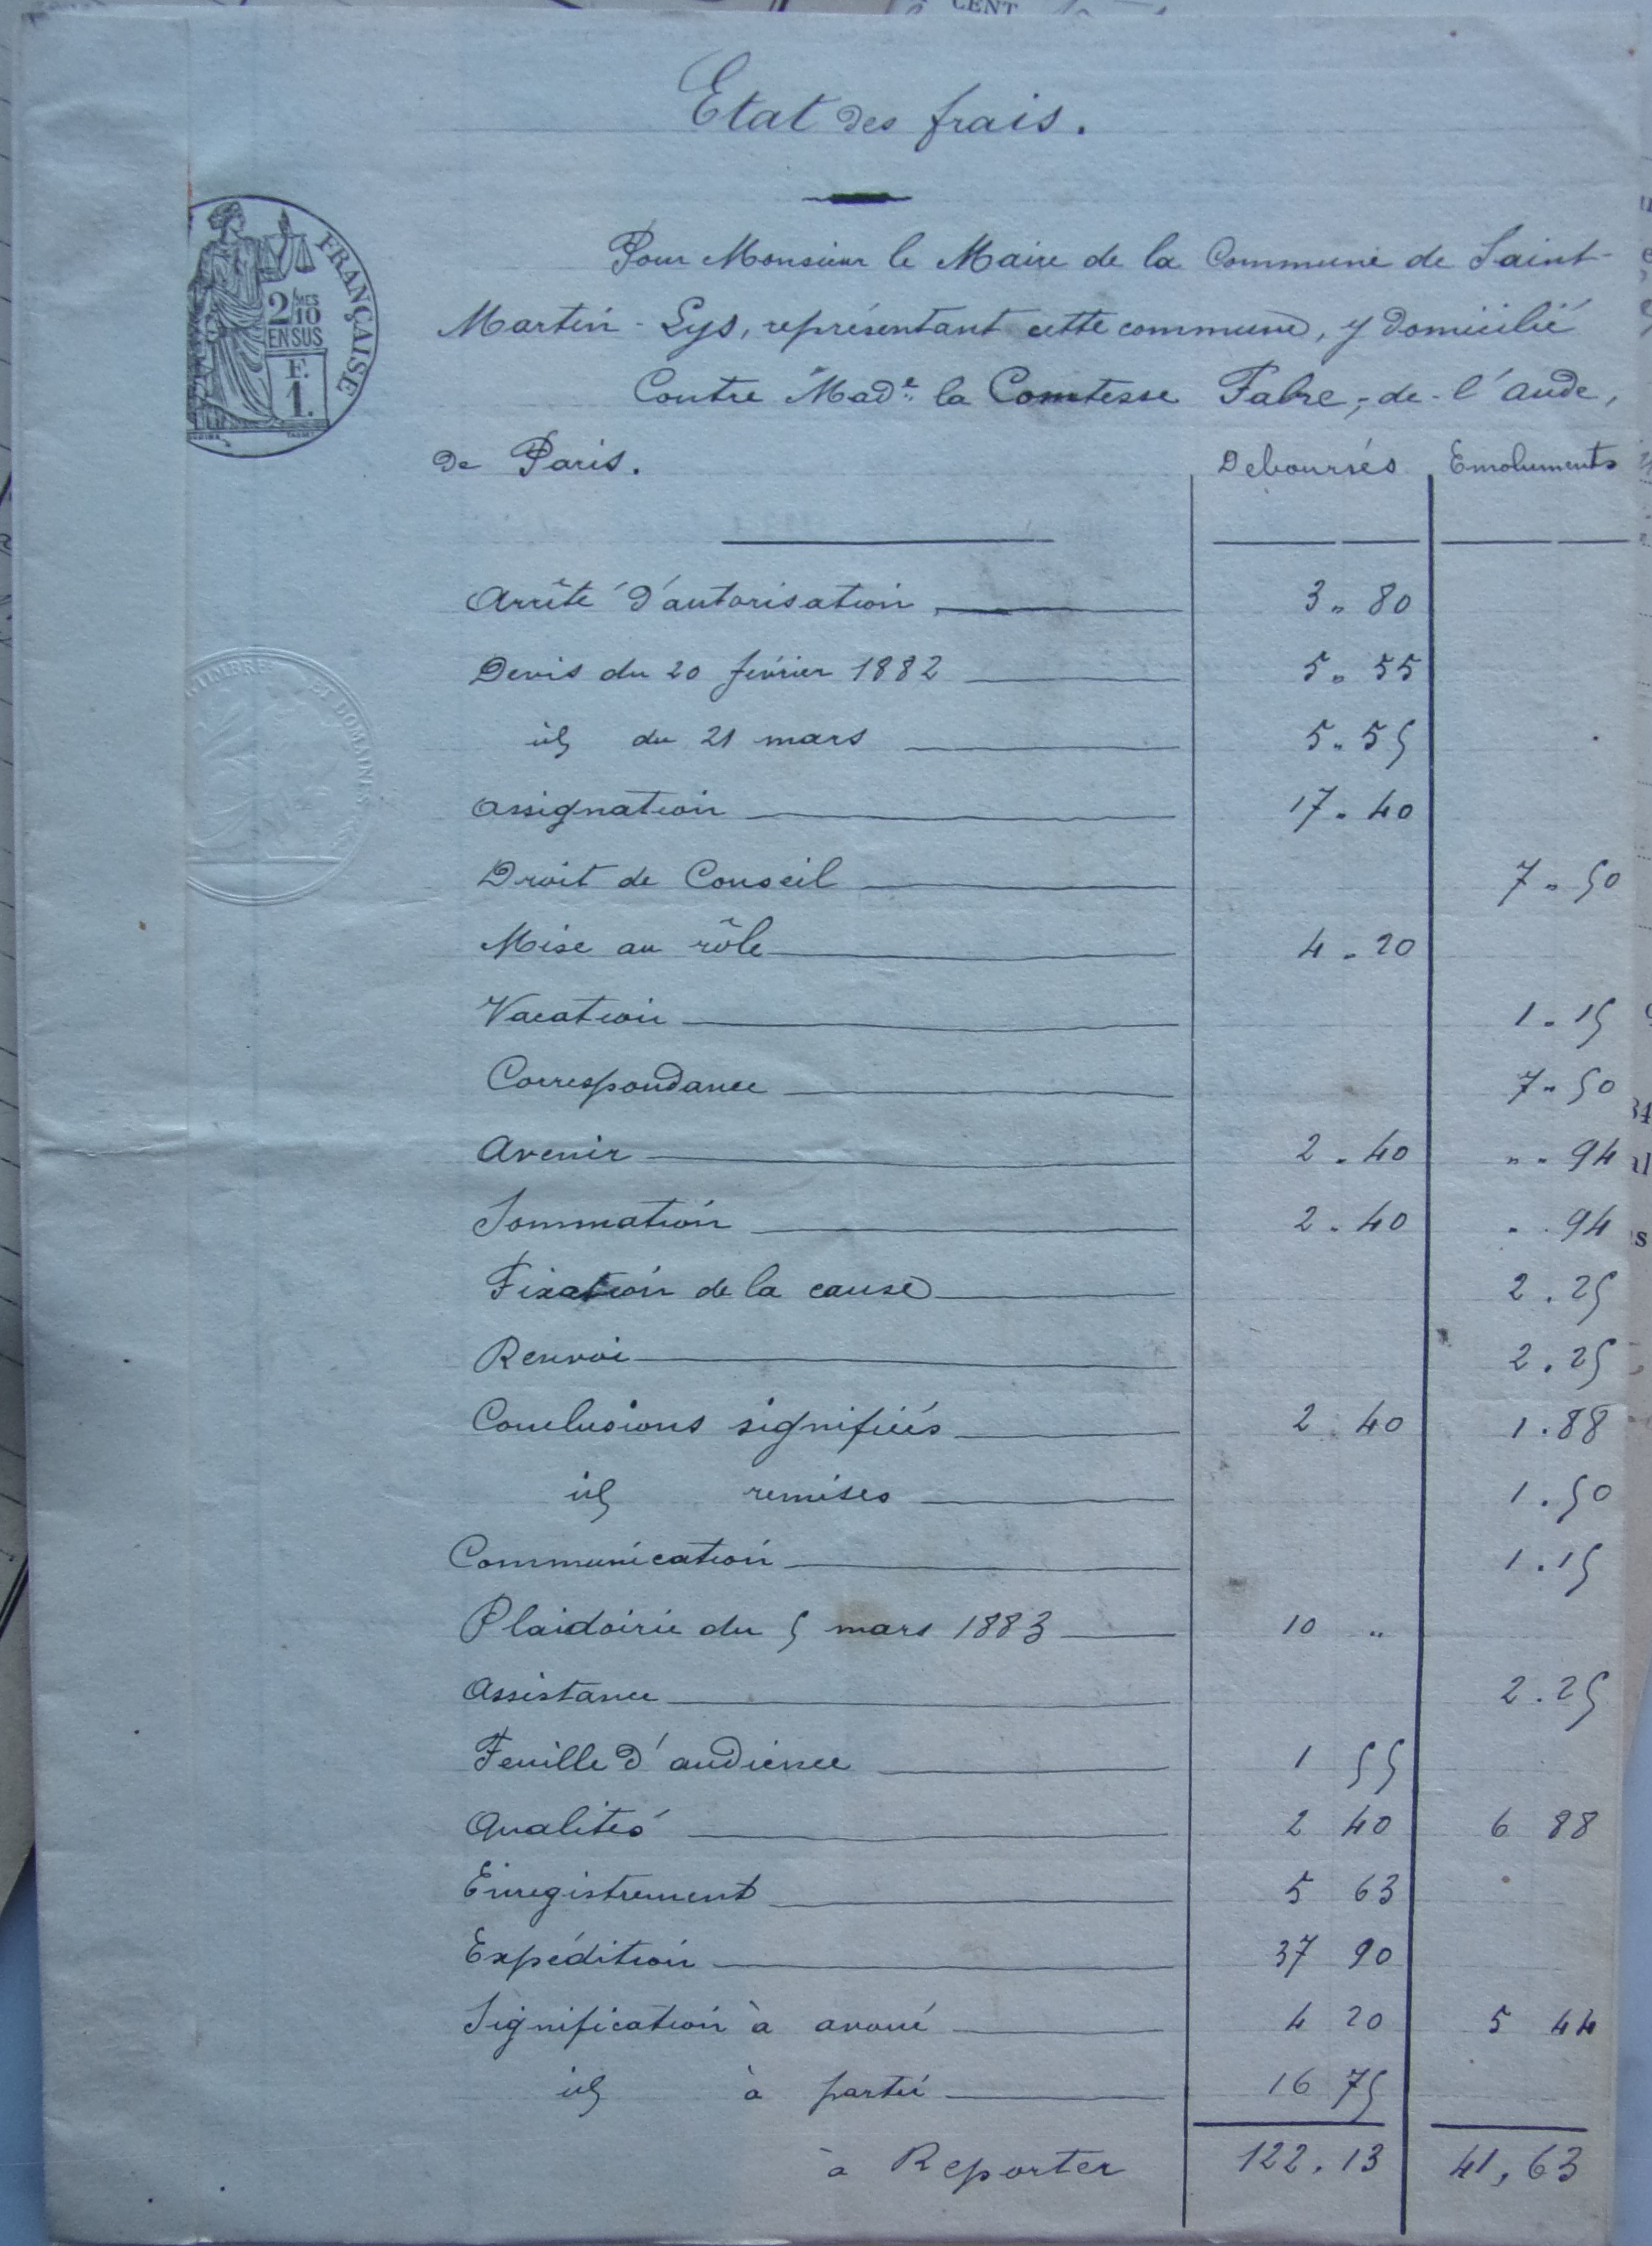 CENT
Etat des frais.
Pour Monsieur le Maire de la Commune de Saint-
Martin-Lys, représentant cette commune, y domicilié
Contre Made la Comtesse Fabre, de l'aude,
de Paris.
Deboursés Emoluments
FRANÇAISE
2/10MES
EN SUS
F.
1.
TIMBRE ET DOMAINES
Arrêté d'autorisation 3 " 80
Devis du 20 février 1882 5 " 55
id du 21 mars 5 " 55
Assignation 17 " 40
Droit de Conseil 7 " 50
Mise au rôle 4 " 20
Vacation 1 " 15
Correspondance 7 " 50
Avenir 2 " 40 " " 94
Sommation 2 " 40 " 94
Fixation de la cause 2 . 25
Renvoi 2 . 25
Conclusions signifiées 2 40 1 . 88
id remises 1 . 50
Communication 1 . 15
Plaidoirie du 5 mars 1883 10 "
Assistance 2 . 25
Feuille d'audience 1 55
Qualités 2 40 6 88
Enregistrement 5 63
Expédition 37 90
Signification à avoué 4 20 5 44
id à partie 16 75
à Reporter 122.13 41,63